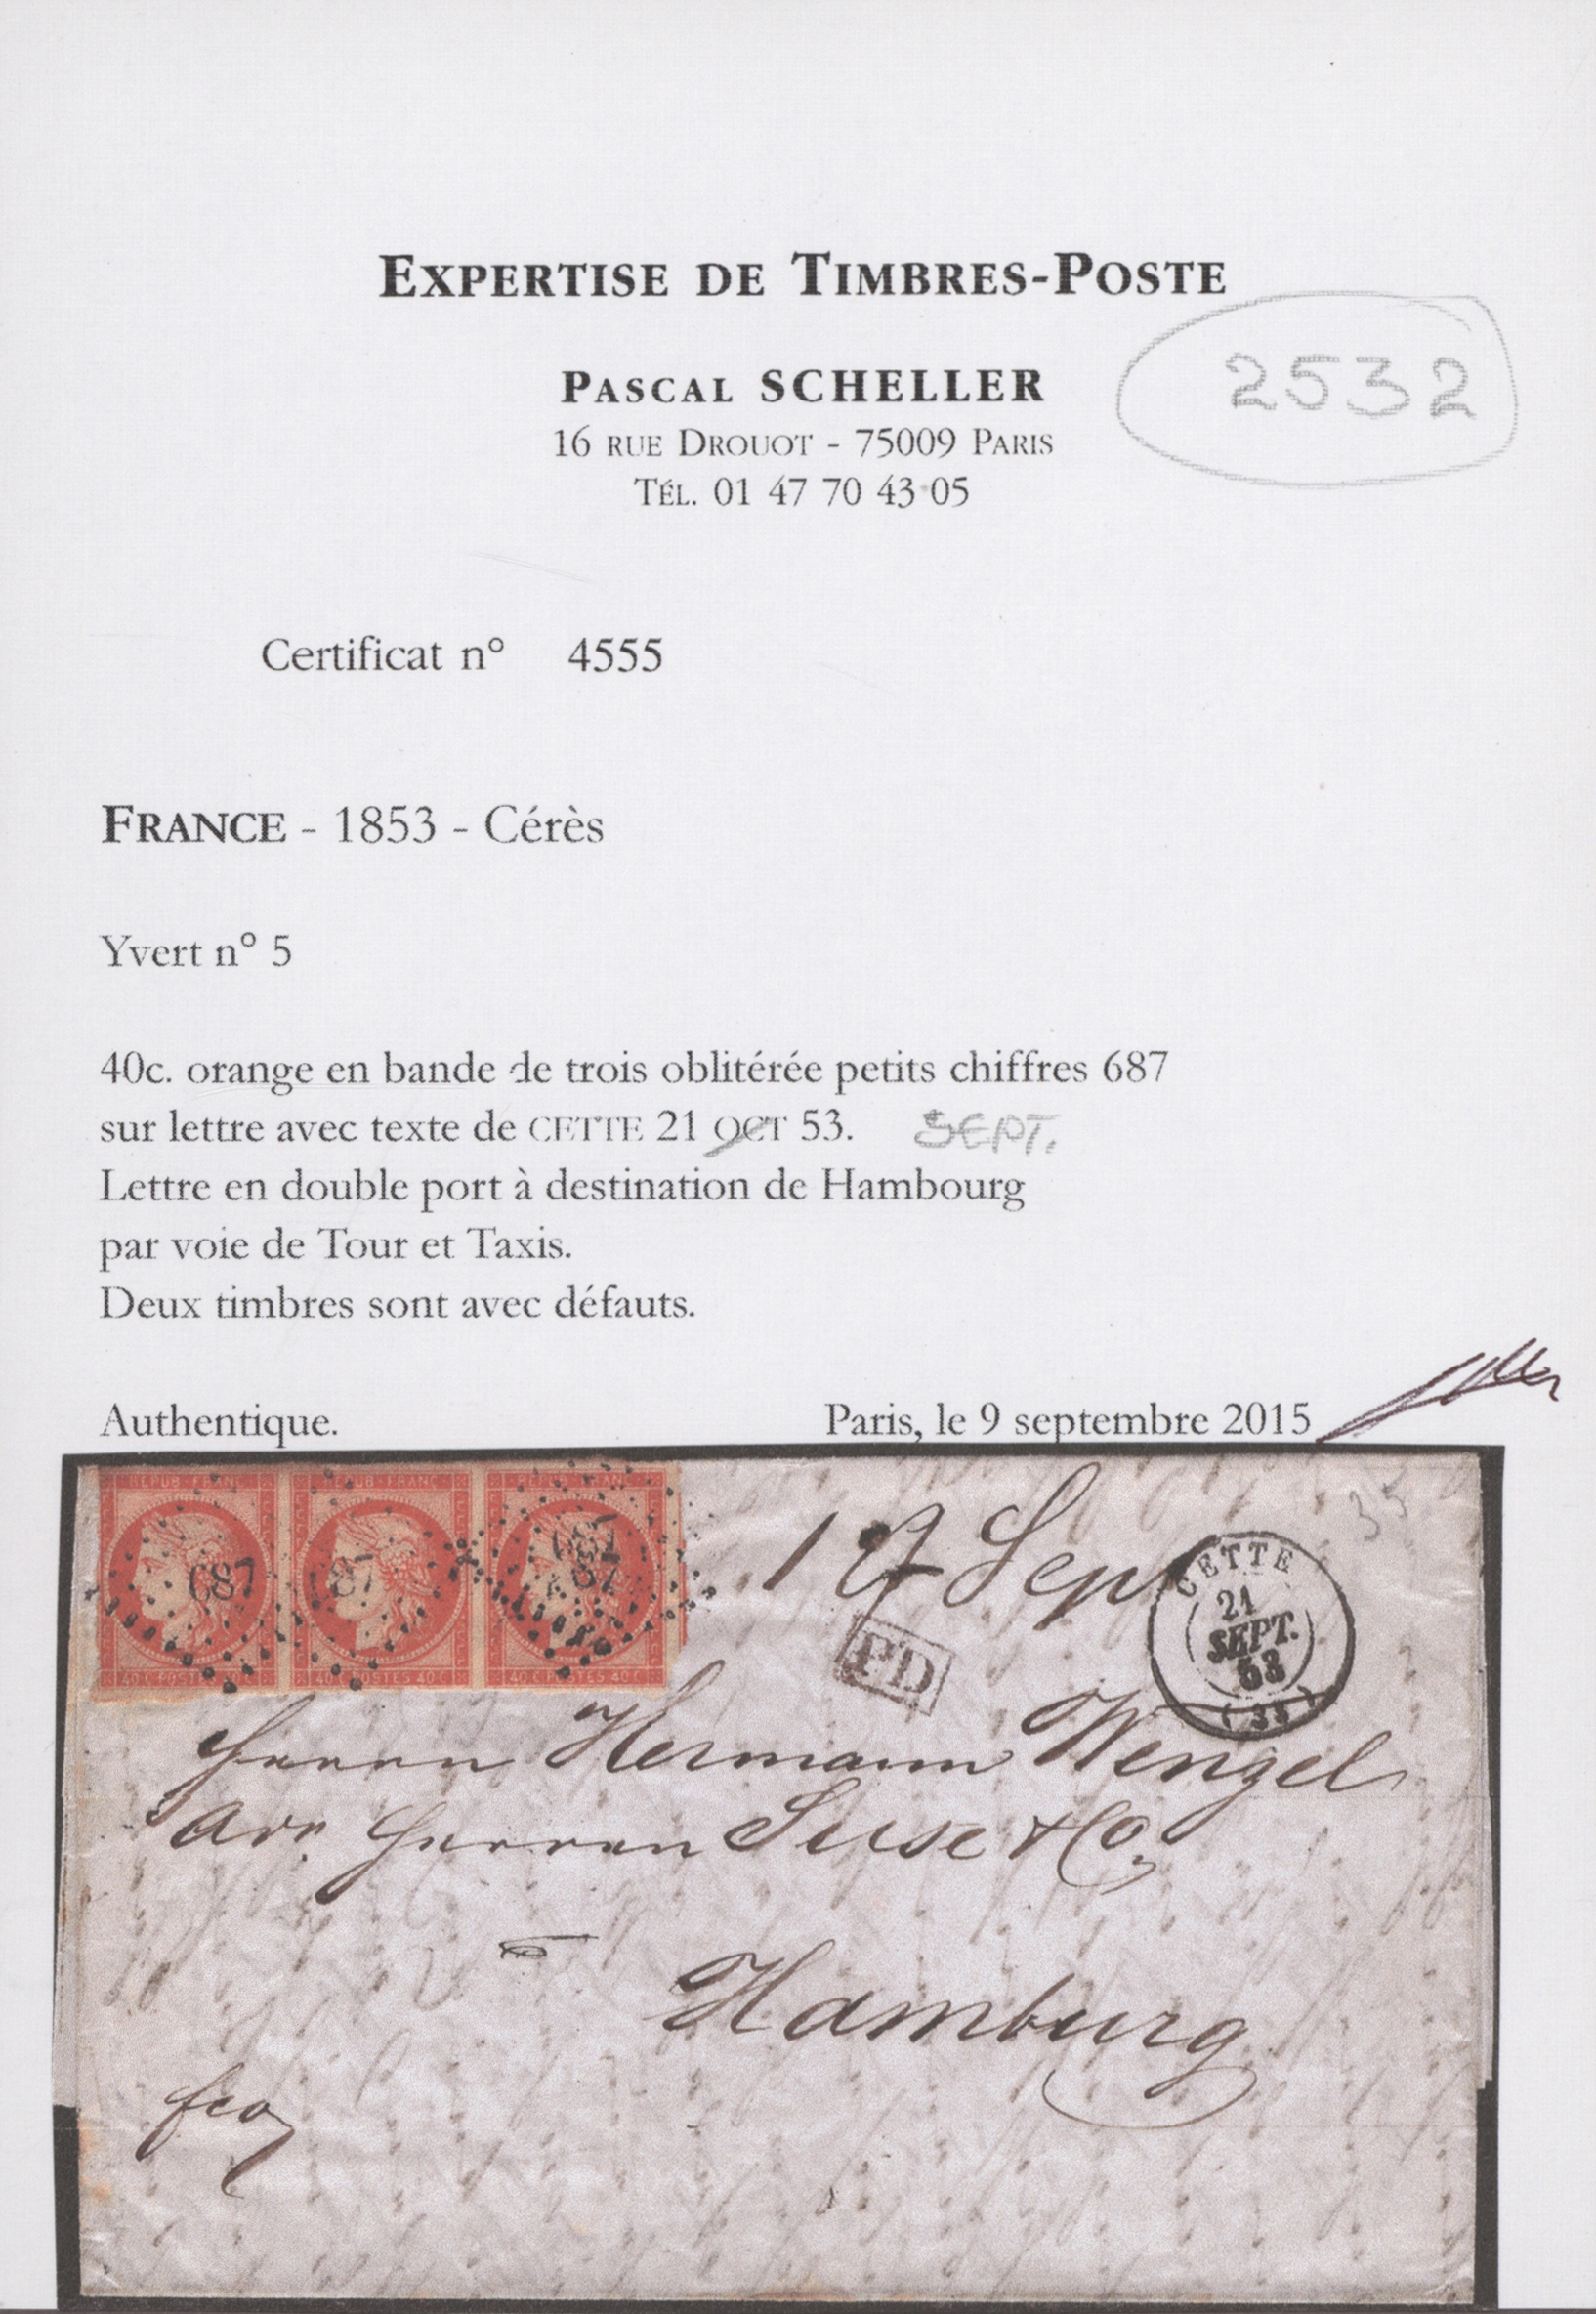 EXPERTISE DE TIMBRES-POSTE
PASCAL SCHELLER
2532
16 RUE DROUOT - 75009 PARIS
TÉL. 01 47 70 43 05
Certificat n° 4555
FRANCE - 1853 - Cérès
Yvert n° 5
40c. orange en bande de trois oblitérée petits chiffres 687
sur lettre avec texte de CETTE 21 OCT 53. SEPT.
Lettre en double port à destination de Hambourg
par voie de Tour et Taxis.
Deux timbres sont avec défauts.
Authentique. Paris, le 9 septembre 2015
REPUB FRANC REPUB FRANC REPUB FRANC
687 87 687
40 C POSTES 40 C 40 C POSTES 40 C 40 C POSTES 40 C
Sept
35
CETTE
21
SEPT.
53
(33)
PD
Herrn Hermann Wenzel
Herren Suse & Co.
Hamburg
fco